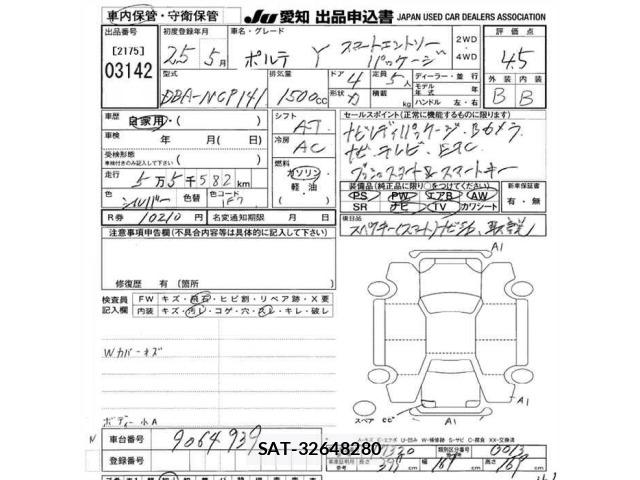 車内保管・守衛保管 JU 愛知 出品申込書 JAPAN USED CAR DEALERS ASSOCIATION
出品番号 初度登録年月 車名・グレード 2WD・4WD 評価点
[2175] 03142 25年 5月 ポルテ Y スマートエントリーパッケージ 4.5
型式 排気量 ドア 4 定員 5人 ディーラー・並行 外装 内装
DBA-NCP141 1500cc 形状 積載 kg モデル年式 年 B B
ハンドル 左・右
車歴 自家用・( ) シフト AT セールスポイント(正常に機能するものに限ります)
車検 年 月(日) 冷房 AC ナビレディパッケージ、Bカメラ
受検形態 ナビ テレビ ETC
(車検付きのみ記入して下さい) 燃料 ガソリン・軽・油 プッシュスタート&スマートキー
走行 5万5千582km 装備品(純正品に限り○をつけてください) 新車保証書
色 シルバー 色替 色コード 1F7 PS PW エアB AW 有・無
SR ナビ TV カワシート
R券 10210 円 名変通知期限 月 日 後日品
注意事項申告欄(不具合内容等は具体的に記入して下さい) スペアキー(スマート)
修復歴 有 (箇所
検査員記入欄 FW キズ・飛石・ヒビ割・リペア跡・X要
内装 キズ・汚レ・コゲ・穴・スレ・キレ・破レ
Wカバーキズ
ボディー小A
A1
A1
スペア
A1
車台番号 9064939
登録番号
A-キズ E-エクボ U-凹み W-補修跡 S-サビ C-腐食 XX-交換済
型式指定 類別区分番号 0013
車庫証明用 長さ 幅 169 高さ 169
SAT-32648280